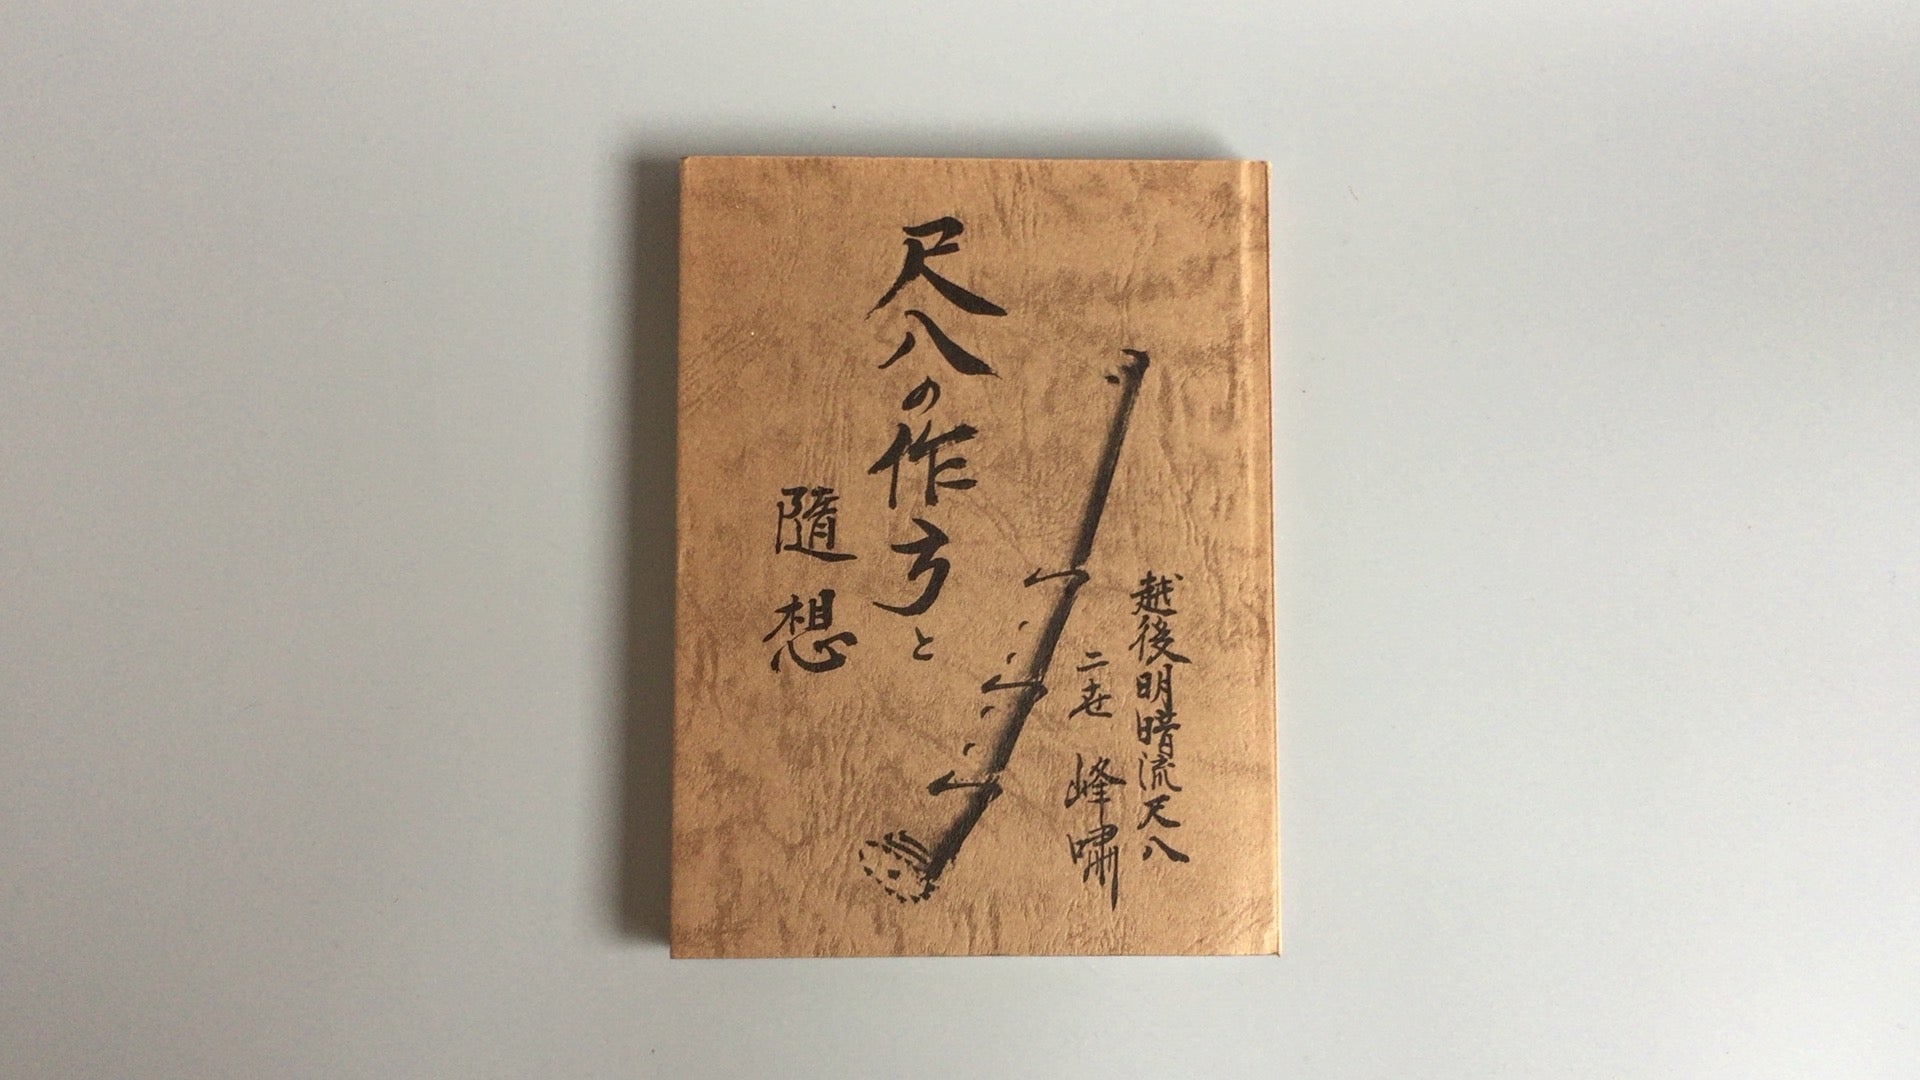 尺八の作り方と
随想
越後明暗流尺八
二世 峰嘯